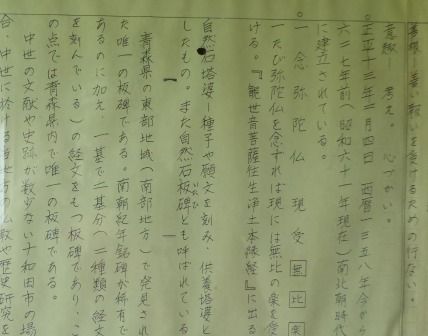 善根＝善い報いを受けるための行ない。
意趣　考え。　心づかい。
。正平十三年二月四日　西暦一三五八年今から
六二七年前（昭和六十一年現在）南北朝時代
に建立されている。
。一念弥陀仏　現受無比楽
一たび弥陀仏を念ずれば現には無比の楽を受
ける。『観世音菩薩往生浄土本縁経』に出る
自然石塔婆＝種子や願文を刻み、供養塔婆と
したもの。また自然石板碑とも呼ばれている
青森県の東部地域（南部地方）で発見され
た唯一の板碑である。南朝紀年銘碑が稀有で
あるのに加え、一基で二基分（二種類の経文
を刻んでいる）の経文をもつ板碑であり、こ
の点では青森県内で唯一の板碑である。
中世の文献や史跡が数少ない十和田市の場
合、中世に於ける当地方の仏教や歴史研究を